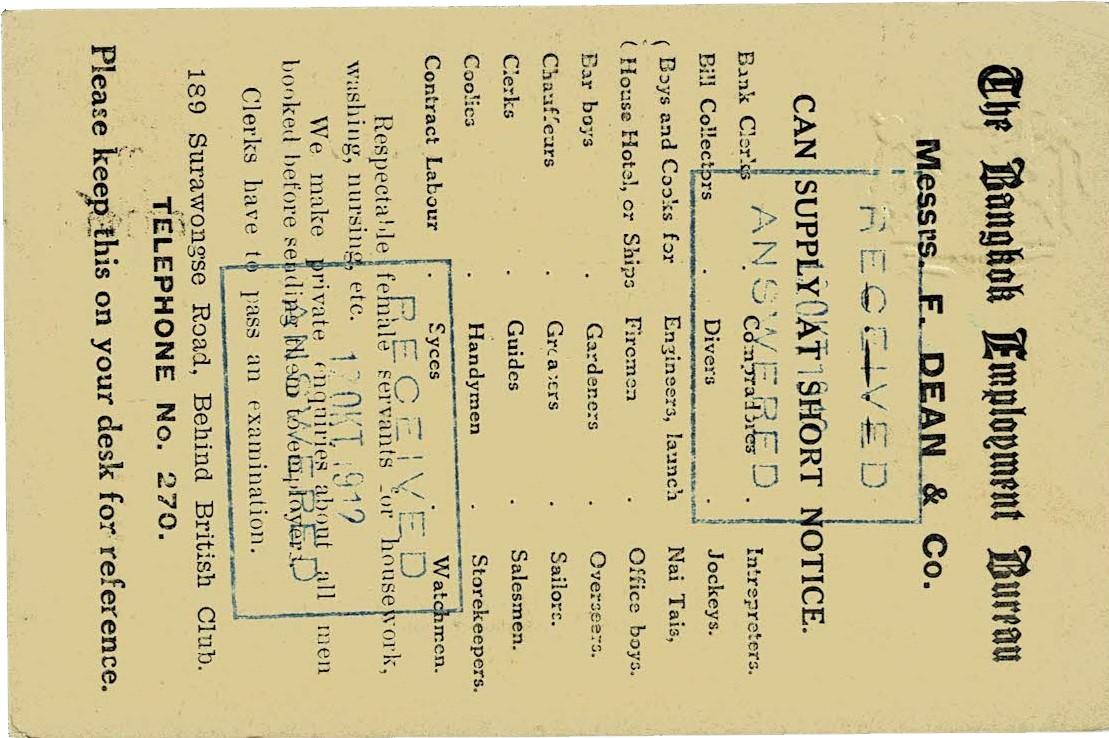 The Bangkok Employment Bureau
Messrs. F. DEAN & Co.
CAN SUPPLY AT SHORT NOTICE.
Bank Clerks . Compradores . Intrepreters.
Bill Collectors . Divers . Jockeys.
( Boys and Cooks for Engineers, launch Nai Tais,
( House Hotel, or Ships Firemen . Office boys.
Bar boys . Gardeners . Overseers.
Chauffeurs . Greasers . Sailors.
Clerks . Guides . Salesmen.
Coolies . Handymen . Storekeepers.
Contract Labour . Syces . Watchmen.
Respectable female servants for housework,
washing, nursing, etc.
We make private enquiries about all men
booked before sending them to employers.
Clerks have to pass an examination.
189 Surawongse Road, Behind British Club.
TELEPHONE No. 270.
Please keep this on your desk for reference.
RECEIVED
ANSWERED
RECEIVED
12 OKT 1912
ANSWERED